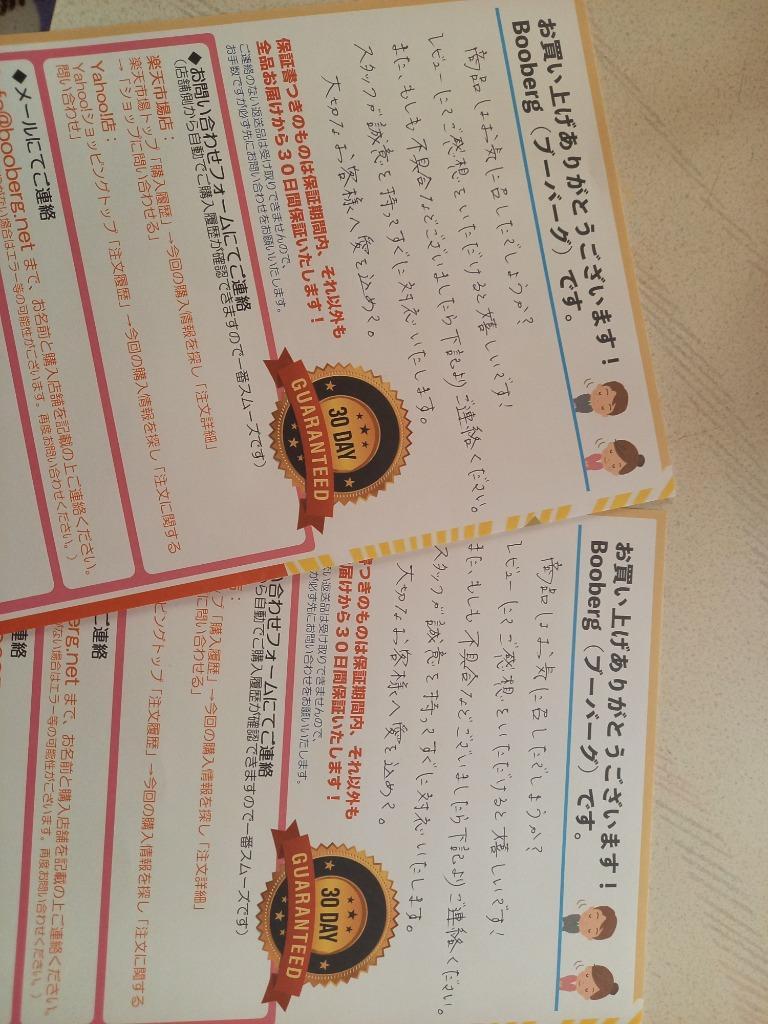 お買い上げありがとうございます！
Booberg（ブーバーグ）です。
商品はお気に召したでしょうか？
レビューにてご感想をいただけると嬉しいです！
また、もしも不具合などございましたら下記よりご連絡ください。
スタッフが誠意を持ってすぐに対応いたします。
大切なお客様へ愛を込めて。
保証書つきのものは保証期間内、それ以外も
全品お届けから30日間保証いたします！
ご連絡のない返送品は受け取りできませんので、
お手数ですが必ず先にお問い合わせをお願いいたします。
30 DAY
GUARANTEED
◆お問い合わせフォームにてご連絡
（店舗側から自動でご購入履歴が確認できますので一番スムーズです）
楽天市場店：
楽天市場トップ「購入履歴」→今回の購入情報を探し「注文詳細」
→「ショップに問い合わせる」
Yahoo!店：
Yahoo!ショッピングトップ「注文履歴」→今回の購入情報を探し「注文に関する
問い合わせ」
◆メールにてご連絡
fo@booberg.net まで、お名前と購入店舗を記載の上ご連絡ください。
がない場合はエラー等の可能性がございます。再度お問い合わせください。）
お買い上げありがとうございます！
Booberg（ブーバーグ）です。
商品はお気に召したでしょうか？
レビューにてご感想をいただけると嬉しいです！
また、もしも不具合などございましたら下記よりご連絡ください。
スタッフが誠意を持ってすぐに対応いたします。
大切なお客様へ愛を込めて。
つきのものは保証期間内、それ以外も
届けから30日間保証いたします！
ない返送品は受け取りできませんので、
が必ず先にお問い合わせをお願いいたします。
30 DAY
GUARANTEED
い合わせフォームにてご連絡
から自動でご購入履歴が確認できますので一番スムーズです）
店：
ップ「購入履歴」→今回の購入情報を探し「注文詳細」
に問い合わせる」
ョッピングトップ「注文履歴」→今回の購入情報を探し「注文に関する
ご連絡
erg.net まで、お名前と購入店舗を記載の上ご連絡ください。
ない場合はエラー等の可能性がございます。再度お問い合わせください。）
連絡